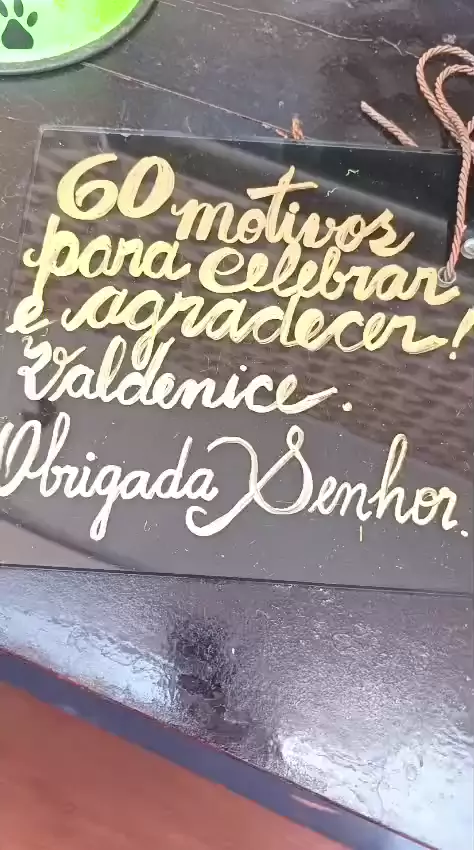 60 motivos
para celebrar
e agradecer!
Valdenice.
Obrigada Senhor.